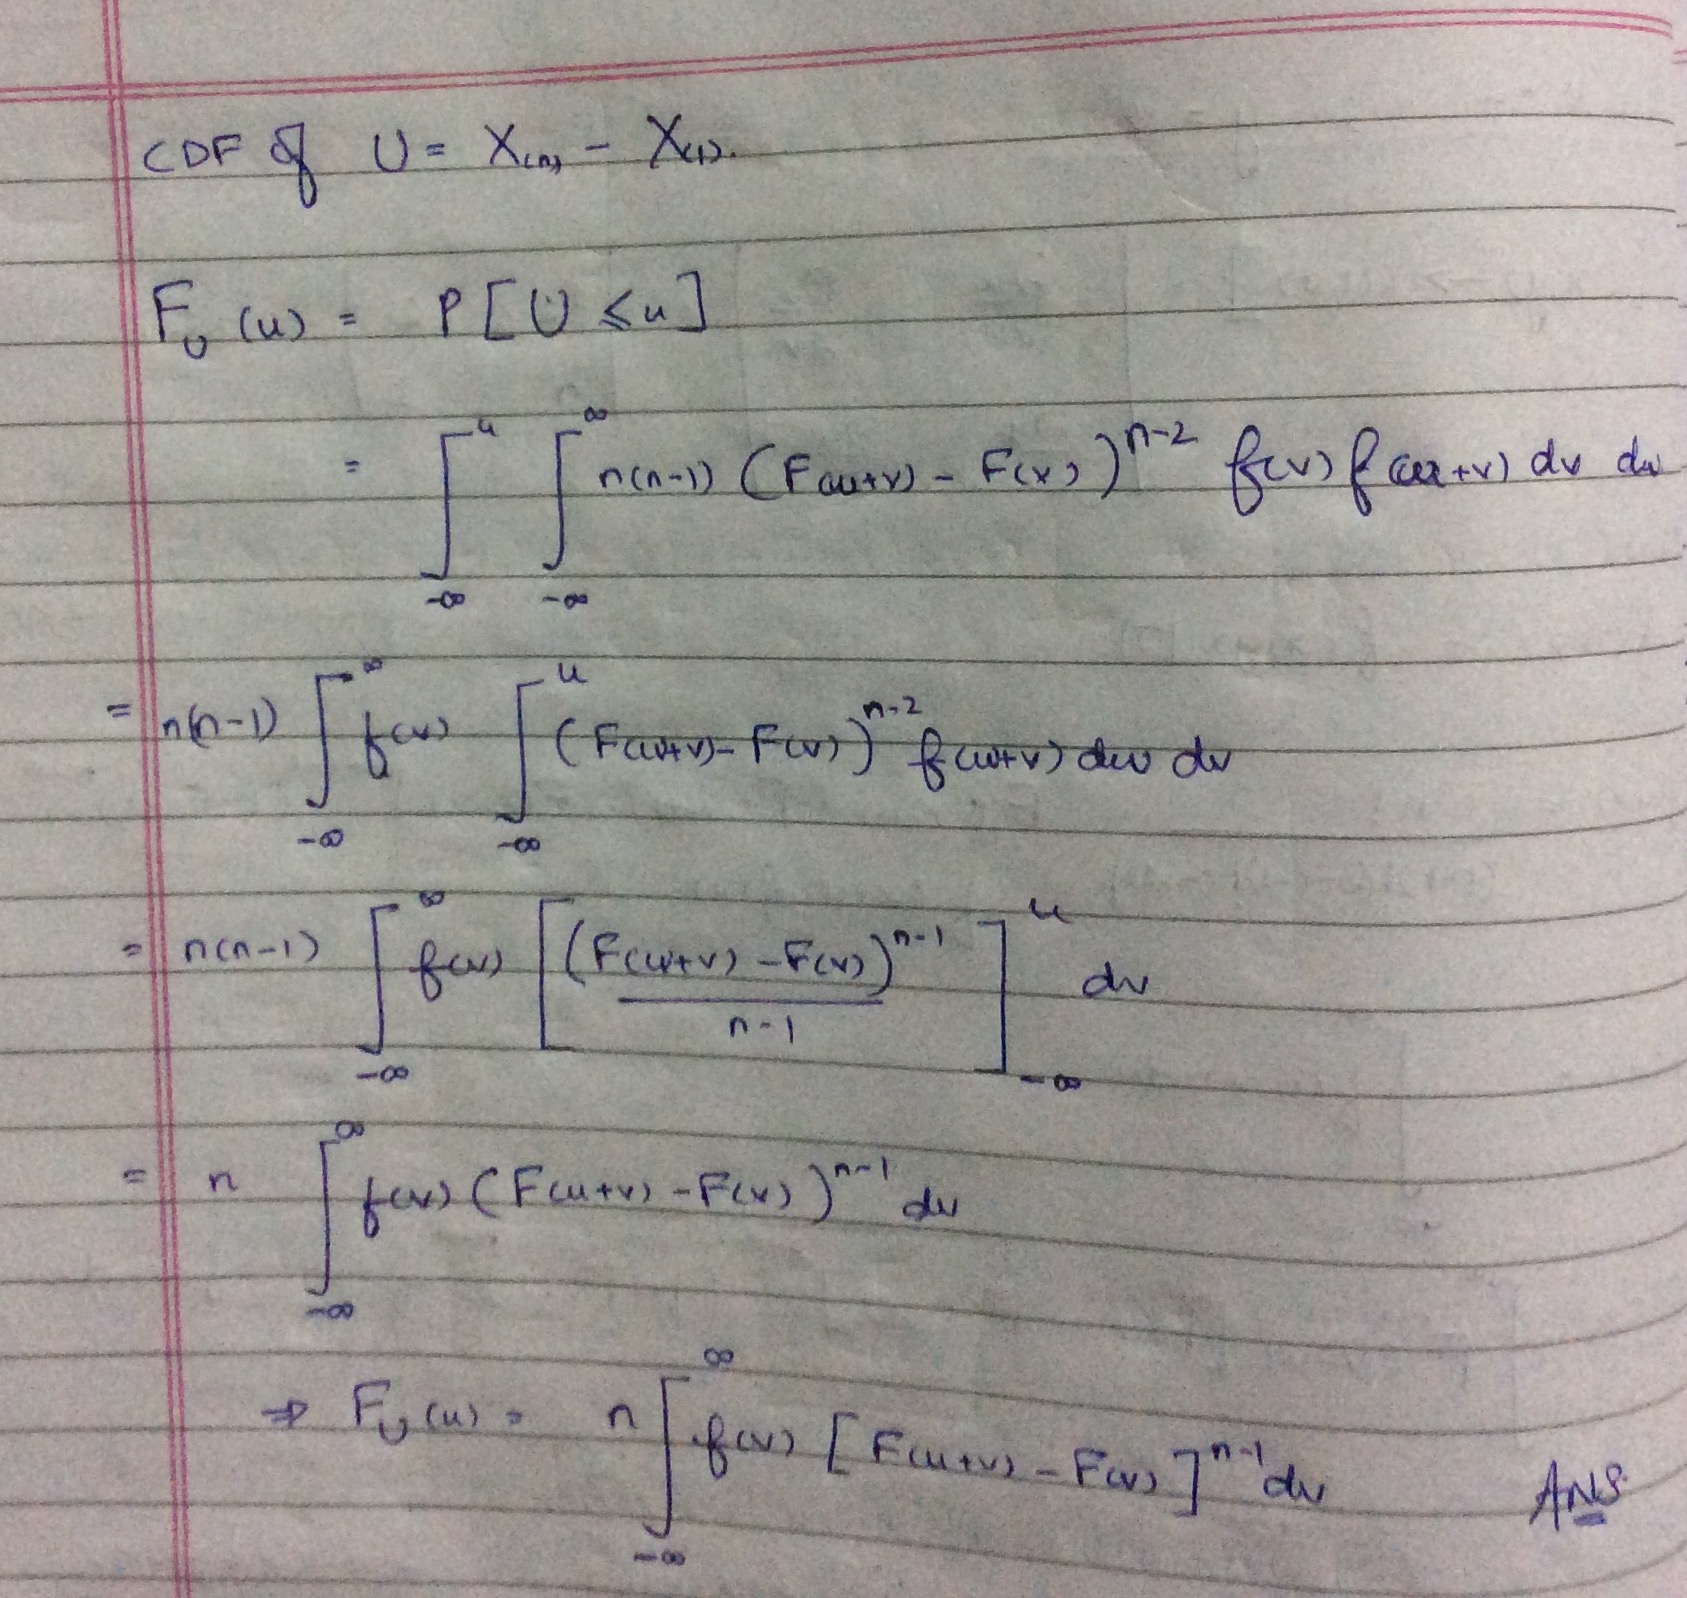 CDF of U = X₍ₙ₎ - X₍₁₎.
F_U (u) = P[U ≤ u]
= ∫_{-∞}^{u} ∫_{-∞}^{∞} n(n-1) (F(u+v) - F(v))^{n-2} f(v) f(u+v) dv du
= n(n-1) ∫_{-∞}^{∞} f(v) ∫_{-∞}^{u} (F(w+v) - F(v))^{n-2} f(w+v) dw dv
= n(n-1) ∫_{-∞}^{∞} f(v) [ (F(w+v) - F(v))^{n-1} / n-1 ]_{-∞}^{u} dv
= n ∫_{-∞}^{∞} f(v) (F(u+v) - F(v))^{n-1} dv
⇒ F_U (u) = n ∫_{-∞}^{∞} f(v) [F(u+v) - F(v)]^{n-1} dv ANS.